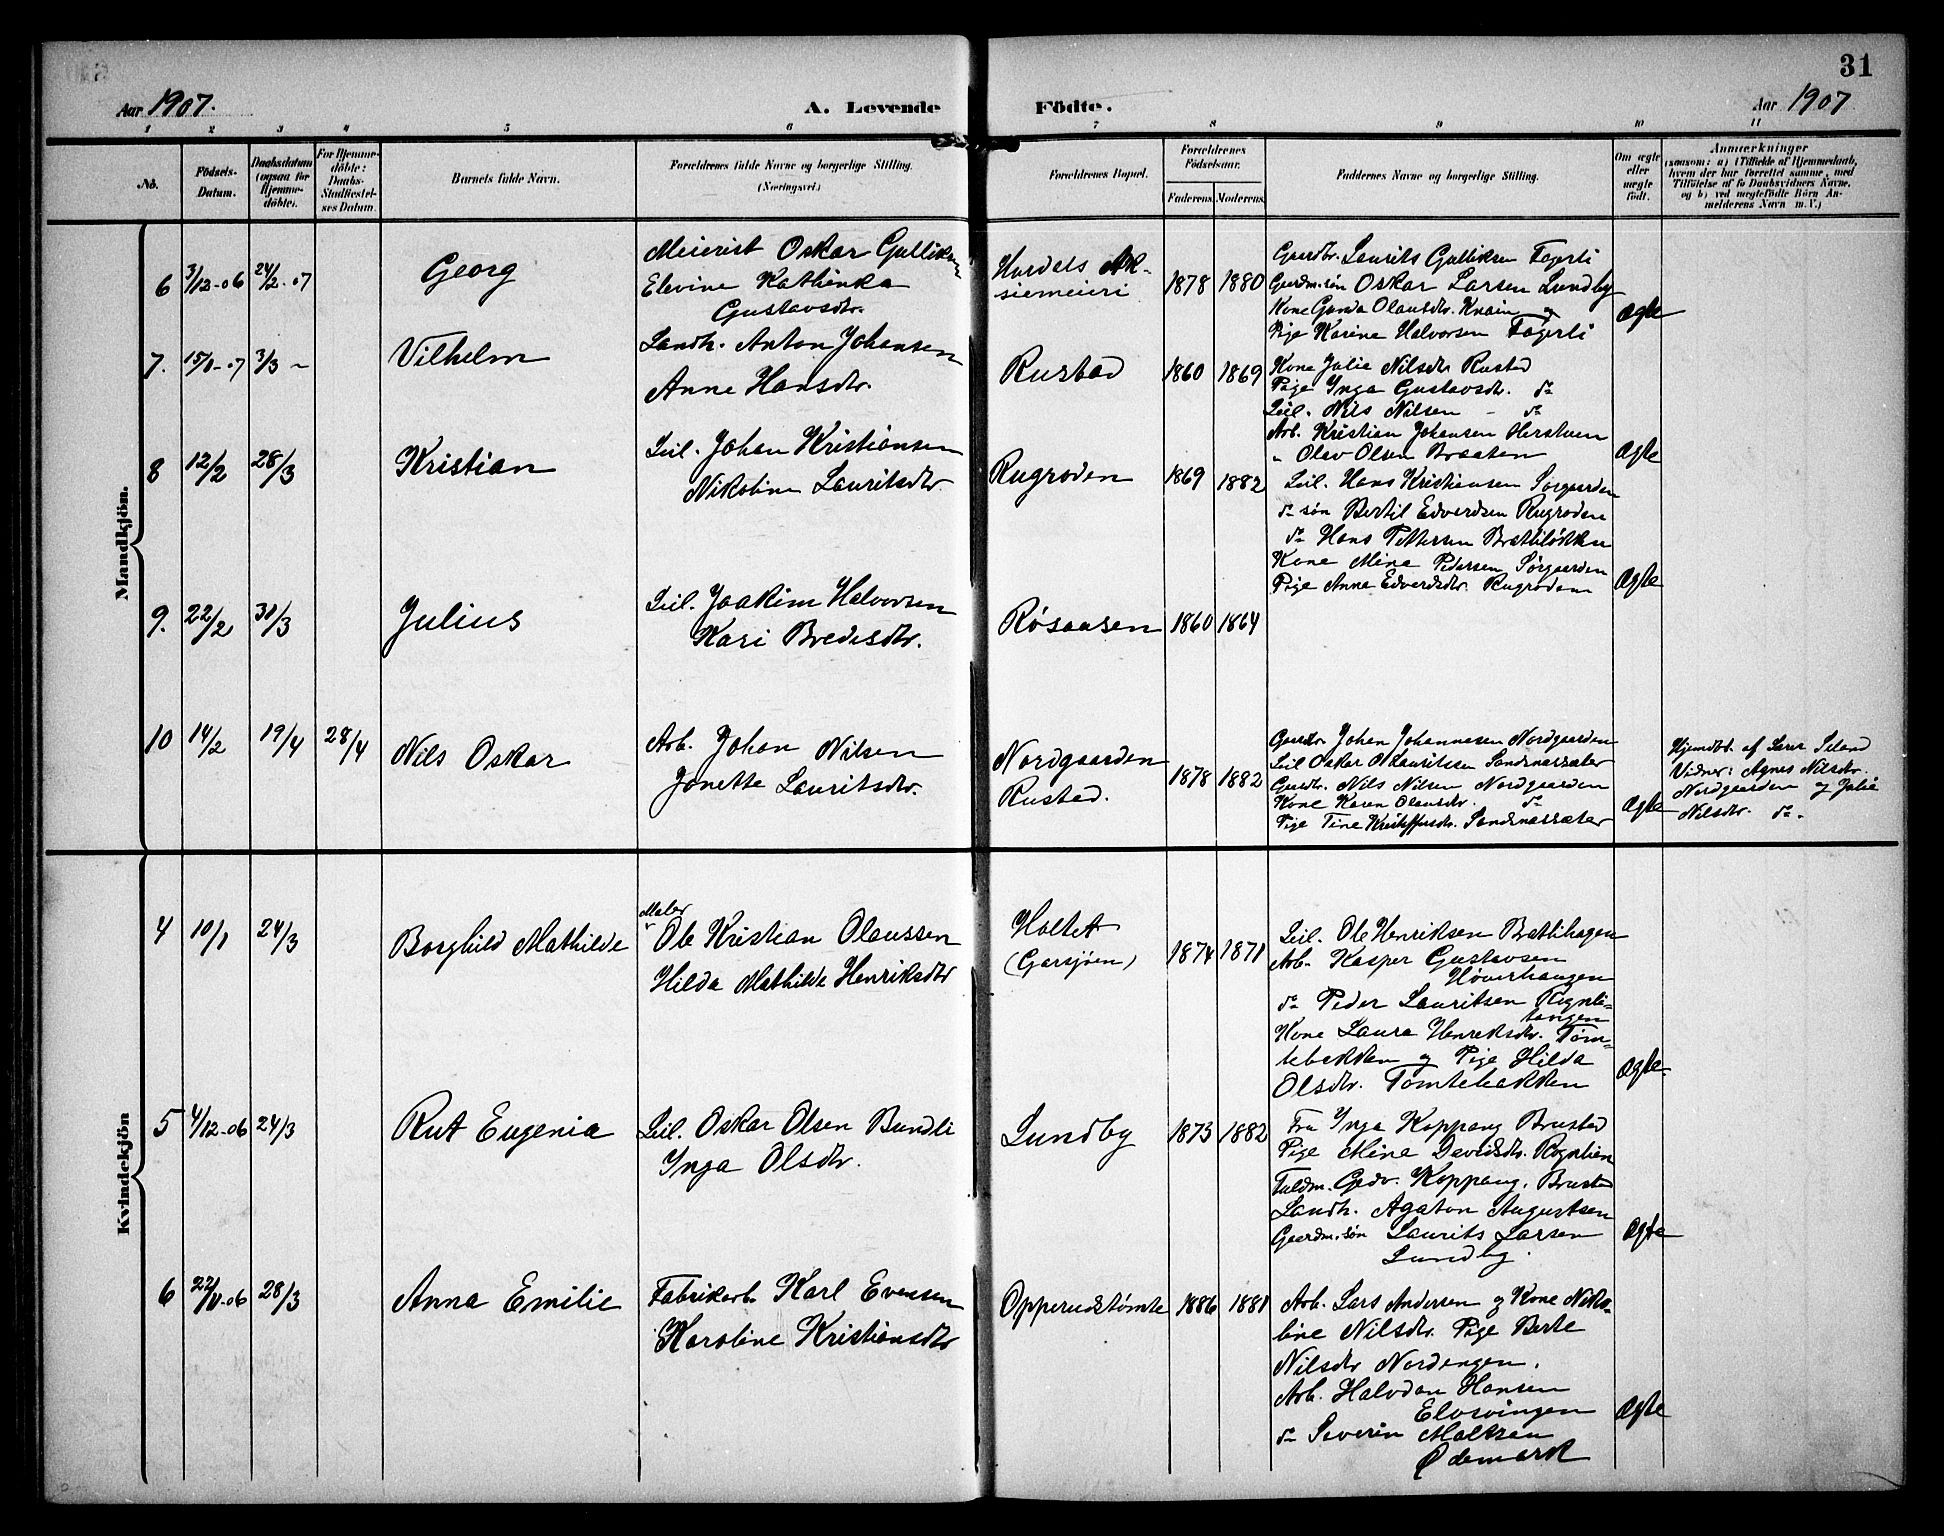 31
Aar 1907.
A. Levende Födte.
Aar 1907
1 2 3 4 5 6 7 8 9 10 11
No.
Födsels-Datum.
Daabsdatum (ogsaa for Hjemme-döbte).
For Hjemme-döbte: Daabs-Stadfæstel-ses Datum.
Barnets fulde Navn.
Forældrenes fulde Navne og borgerlige Stilling. (Næringsvei.)
Forældrenes Bopæl.
Forældrenes Födselsaar.
Faderens. Moderens.
Faddernes Navne og borgerlige Stilling.
Om ægte eller uægte födt.
Anmærkninger
(saasom: a) i Tilfælde af Hjemmedaab, hvem der har forrettet samme, med Tilföielse af to Daabsvidners Navne, og b) ved uægtefödte Börn An-melderens Navn m. V.)
Mandkjön.
6
3/12-06
24/2-07
Georg
Meierist Oskar Gulliksen
Elevine Kathinka
Gustavsdtr.
Hurdals Ak-
siemeieri
1878
1880
Gaardbr. Laurits Gulliksen Fagerli
Gaardm.søn Oskar Larsen Lundby
Kone Gunda Olausdtr. Knain og
Pige Karine Halvorsen Fagerli
Ægte
7.
15/1-07
3/3 -
Vilhelm
Landh. Anton Johansen
Anne Hansdtr.
Rustad
1860
1869
Kone Julie Nilsdtr Rustad
Pige Inga Gustavsdtr. do
Leil. Nils Nilsen - do
Arb. Kristian Johansen Herstuen
" Olav Olsen Braaten
Ægte
8
12/2
28/3
Kristian
Leil. Johan Kristiansen
Nikoline Lauritsdtr.
Rugroden
1869
1882
Leil. Hans Kristiansen Sørgaarden
do søn Bertil Edvardsen Rugroden
do Hans Pettersen Brættiløkken
Kone Mina Pedersen Sørgaarden
Pige Anne Edvardsdtr. Rugroden
Ægte
9.
22/2
31/3
Julius
Leil. Joakim Halvorsen
Kari Bredesdtr.
Røsaasen
1860
1864
10
14/2
19/4
28/4
Nils Oskar
Arb. Johan Nilsen
Jonette Lauritsdtr.
Nordgaarden
Rustad.
1878
1882
Gaardbr. Johan Johannesen Nordgaarden
Leil Oskar Lauritsen Sandnessæter
Gaardbr. Nils Nilsen Nordgaarden
Kone Karen Olausdtr. do
Pige Tine Kristoffersdtr. Sandnessæter
Ægte
Hjemdbt. af Lærer Seland
Vidner: Agnes Nilsdtr.
Nordgaarden og Julie
Nilsdtr. do.
Kvindekjön
4
10/1
24/3
Borghild Mathilde
Maler
Ole Kristian Olaussen
Hilda Mathilde Henriksdtr
Holtet
(Garsjøen)
1874
1871
Leil. Ole Henriksen Brættihagen
Arb. Kasper Gustavsen
Høverhaugen
do Peder Lauritsen Rognli-
tangen
Kone Laura Henriksdtr. Tøm-
tebakken og Pige Hilda
Olsdtr. Tømtebakken
Ægte.
5
4/12-06
24/3
Rut Eugenia
Leil. Oskar Olsen Bundli
Inga Olsdtr.
Lundby
1873
1882
Fru Inga Koppang Brustad
Pige Mina Davidsdtr. Rognlien
Fuldm. Gedv. Koppang, Brustad
Landh. Agaton Augustsen
Gaardm.søn Laurits Larsen
Lundby.
Ægte
6
22/11-06
28/3
Anna Emilie
Fabrikarb. Karl Evensen
Karoline Kristiansdtr
Opperudstømte
1886
1881
Arb. Lars Andersen og Kone Niko-
line Nilsdtr. Pige Berte
Nilsdtr Nordengen.
Arb. Halvdan Hansen
Elvsvingen
do Severin Maltsen
Ødemark
Ægte